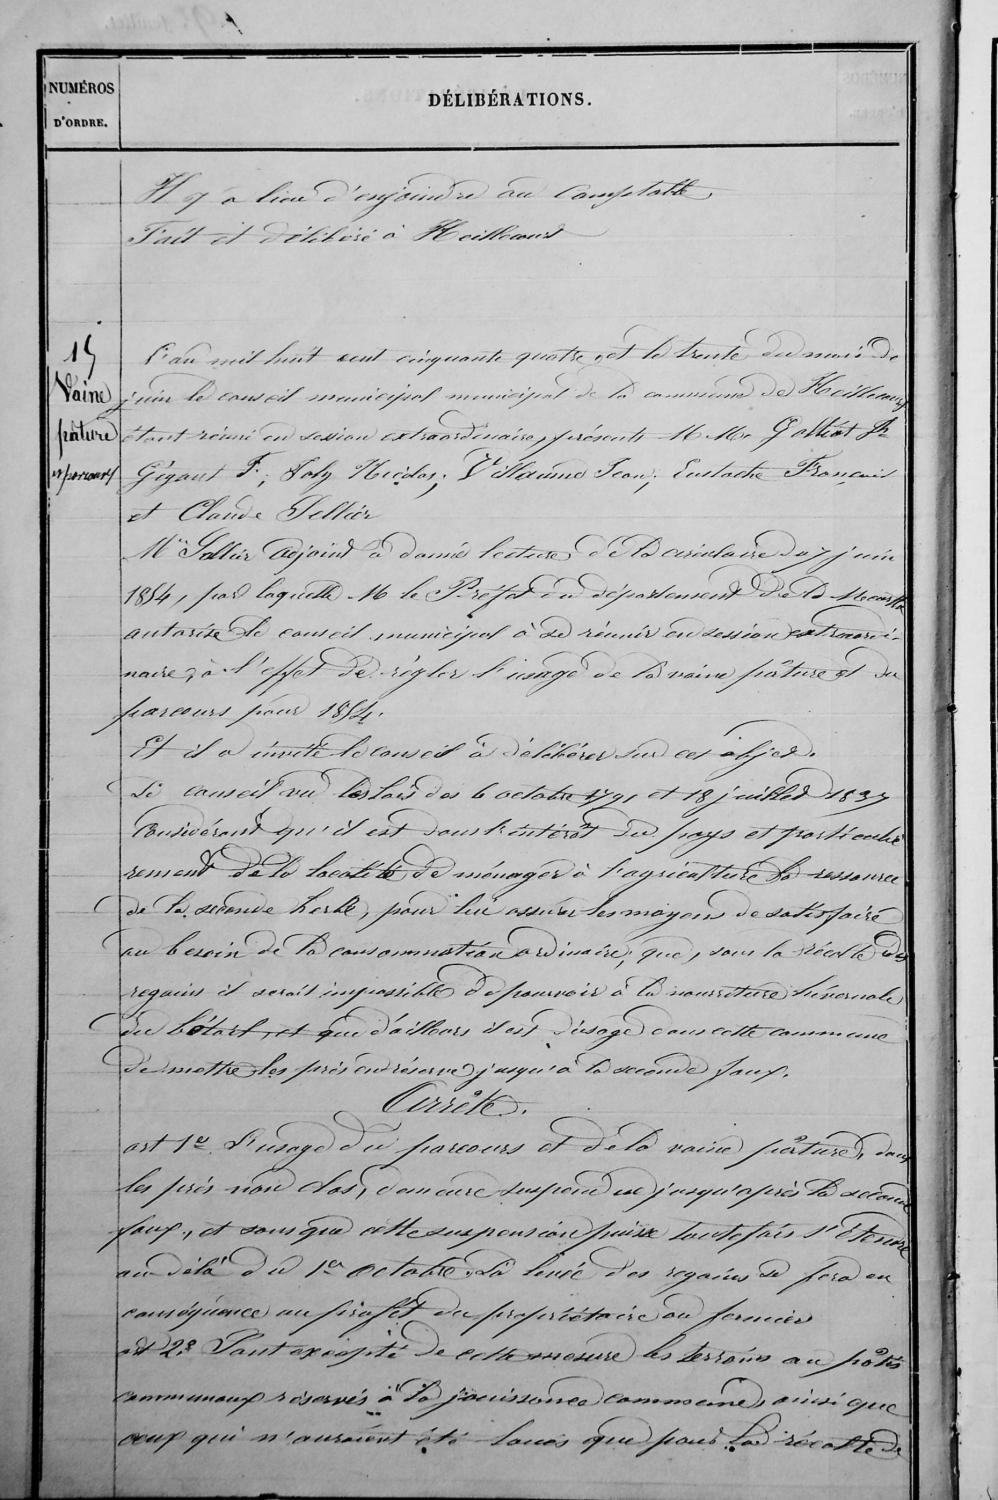 NUMÉROS
D'ORDRE.
DÉLIBÉRATIONS.
Il y a lieu d'enjoindre au Comptable
Fait et délibéré à Heillecourt
15
Vaine
pâture
et parcours
L'an mil huit cent cinquante quatre, et le trente du mois de
juin le conseil municipal municipal de la commune de Heillecourt
étant réuni en session extraordinaire, présents M M.
Gégout F.; Joly Nicolas; Villaume Jean; Eustache François
et Claude Sellier
Mr Sellier adjoint à donné lecture de la circulaire du 7 juin
1854, par laquelle M le Préfet du département de la Meurthe
autorise le conseil municipal à se réunir en session extraordi-
naire, à l'effet de régler l'usage de la vaine pâture et du
parcours pour 1854.
Et il a invité le conseil à délibérer sur cet objet.
Le conseil vu les lois des 6 octobre 1791 et 18 juillet 1837
Considérant qu'il est dans l'intérêt du pays et particuliè
rement de la localité de ménager à l'agriculture la ressource
de la seconde herbe, pour lui assurer les moyens de satisfaire
au besoin de la consommation ordinaire, que, sans la récolte des
regains il serait impossible de pourvoir à la nourriture hivernale
du bétail, et que d'ailleurs il est d'usage dans cette commune
de mettre les prés en réserve jusqu'à la seconde faux.
Arrête.
art 1er L'usage du parcours et de la vaine pâture, dans
les prés non clos, demeure suspendue jusqu'après la seconde
faux, et sans que cette suspension puisse toutefois s'étendre
au delà du 1er octobre. La levée des regains se fera en
conséquence au profit du propriétaire ou fermier
art 2e Sont excepté de cette mesure les terrains au pâtis
communaux réservés à la jouissance commune, ainsi que
ceux qui n'auraient été loués que pour la récolte de